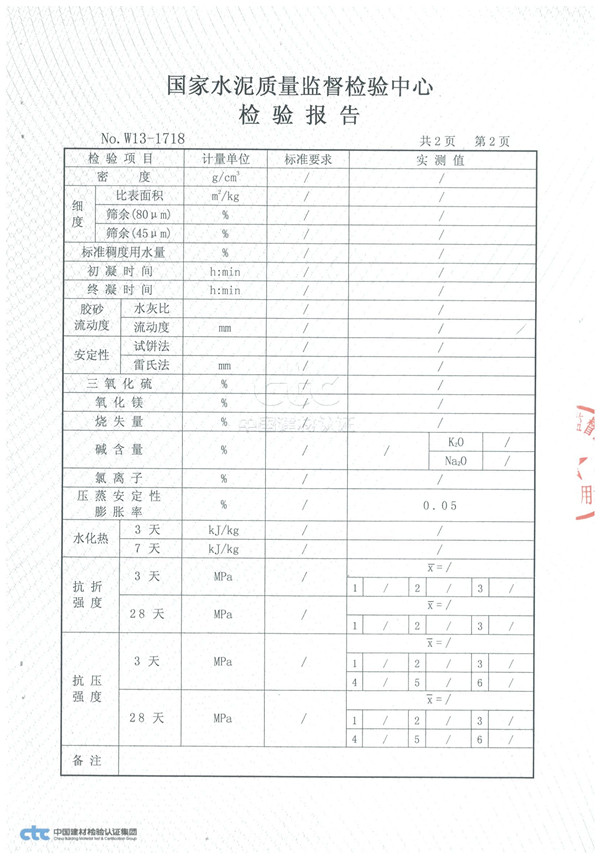 国家水泥质量监督检验中心
检 验 报 告
No.W13-1718 共2页 第2页
检 验 项 目 计量单位 标准要求 实 测 值
密 度 g/cm³ / /
细度 比表面积 m²/kg / /
筛余(80μm) % / /
筛余(45μm) % / /
标准稠度用水量 % / /
初 凝 时 间 h:min / /
终 凝 时 间 h:min / /
胶砂流动度 水灰比 / /
流动度 mm / /
安定性 试饼法 / /
雷氏法 mm / /
三 氧 化 硫 % / /
氧 化 镁 % / /
烧 失 量 % / /
碱 含 量 % / / K₂O /
Na₂O /
氯 离 子 % / /
压 蒸 安 定 性
膨 胀 率 % / 0.05
水化热 3 天 kJ/kg / /
7 天 kJ/kg / /
抗 折
强 度 3 天 MPa / x̄=/
1 / 2 / 3 /
28 天 MPa / x̄=/
1 / 2 / 3 /
抗 压
强 度 3 天 MPa / x̄=/
1 / 2 / 3 /
4 / 5 / 6 /
28 天 MPa / x̄=/
1 / 2 / 3 /
4 / 5 / 6 /
备 注
ctc 中国建材检验认证集团
China Building Material Test & Certification Group